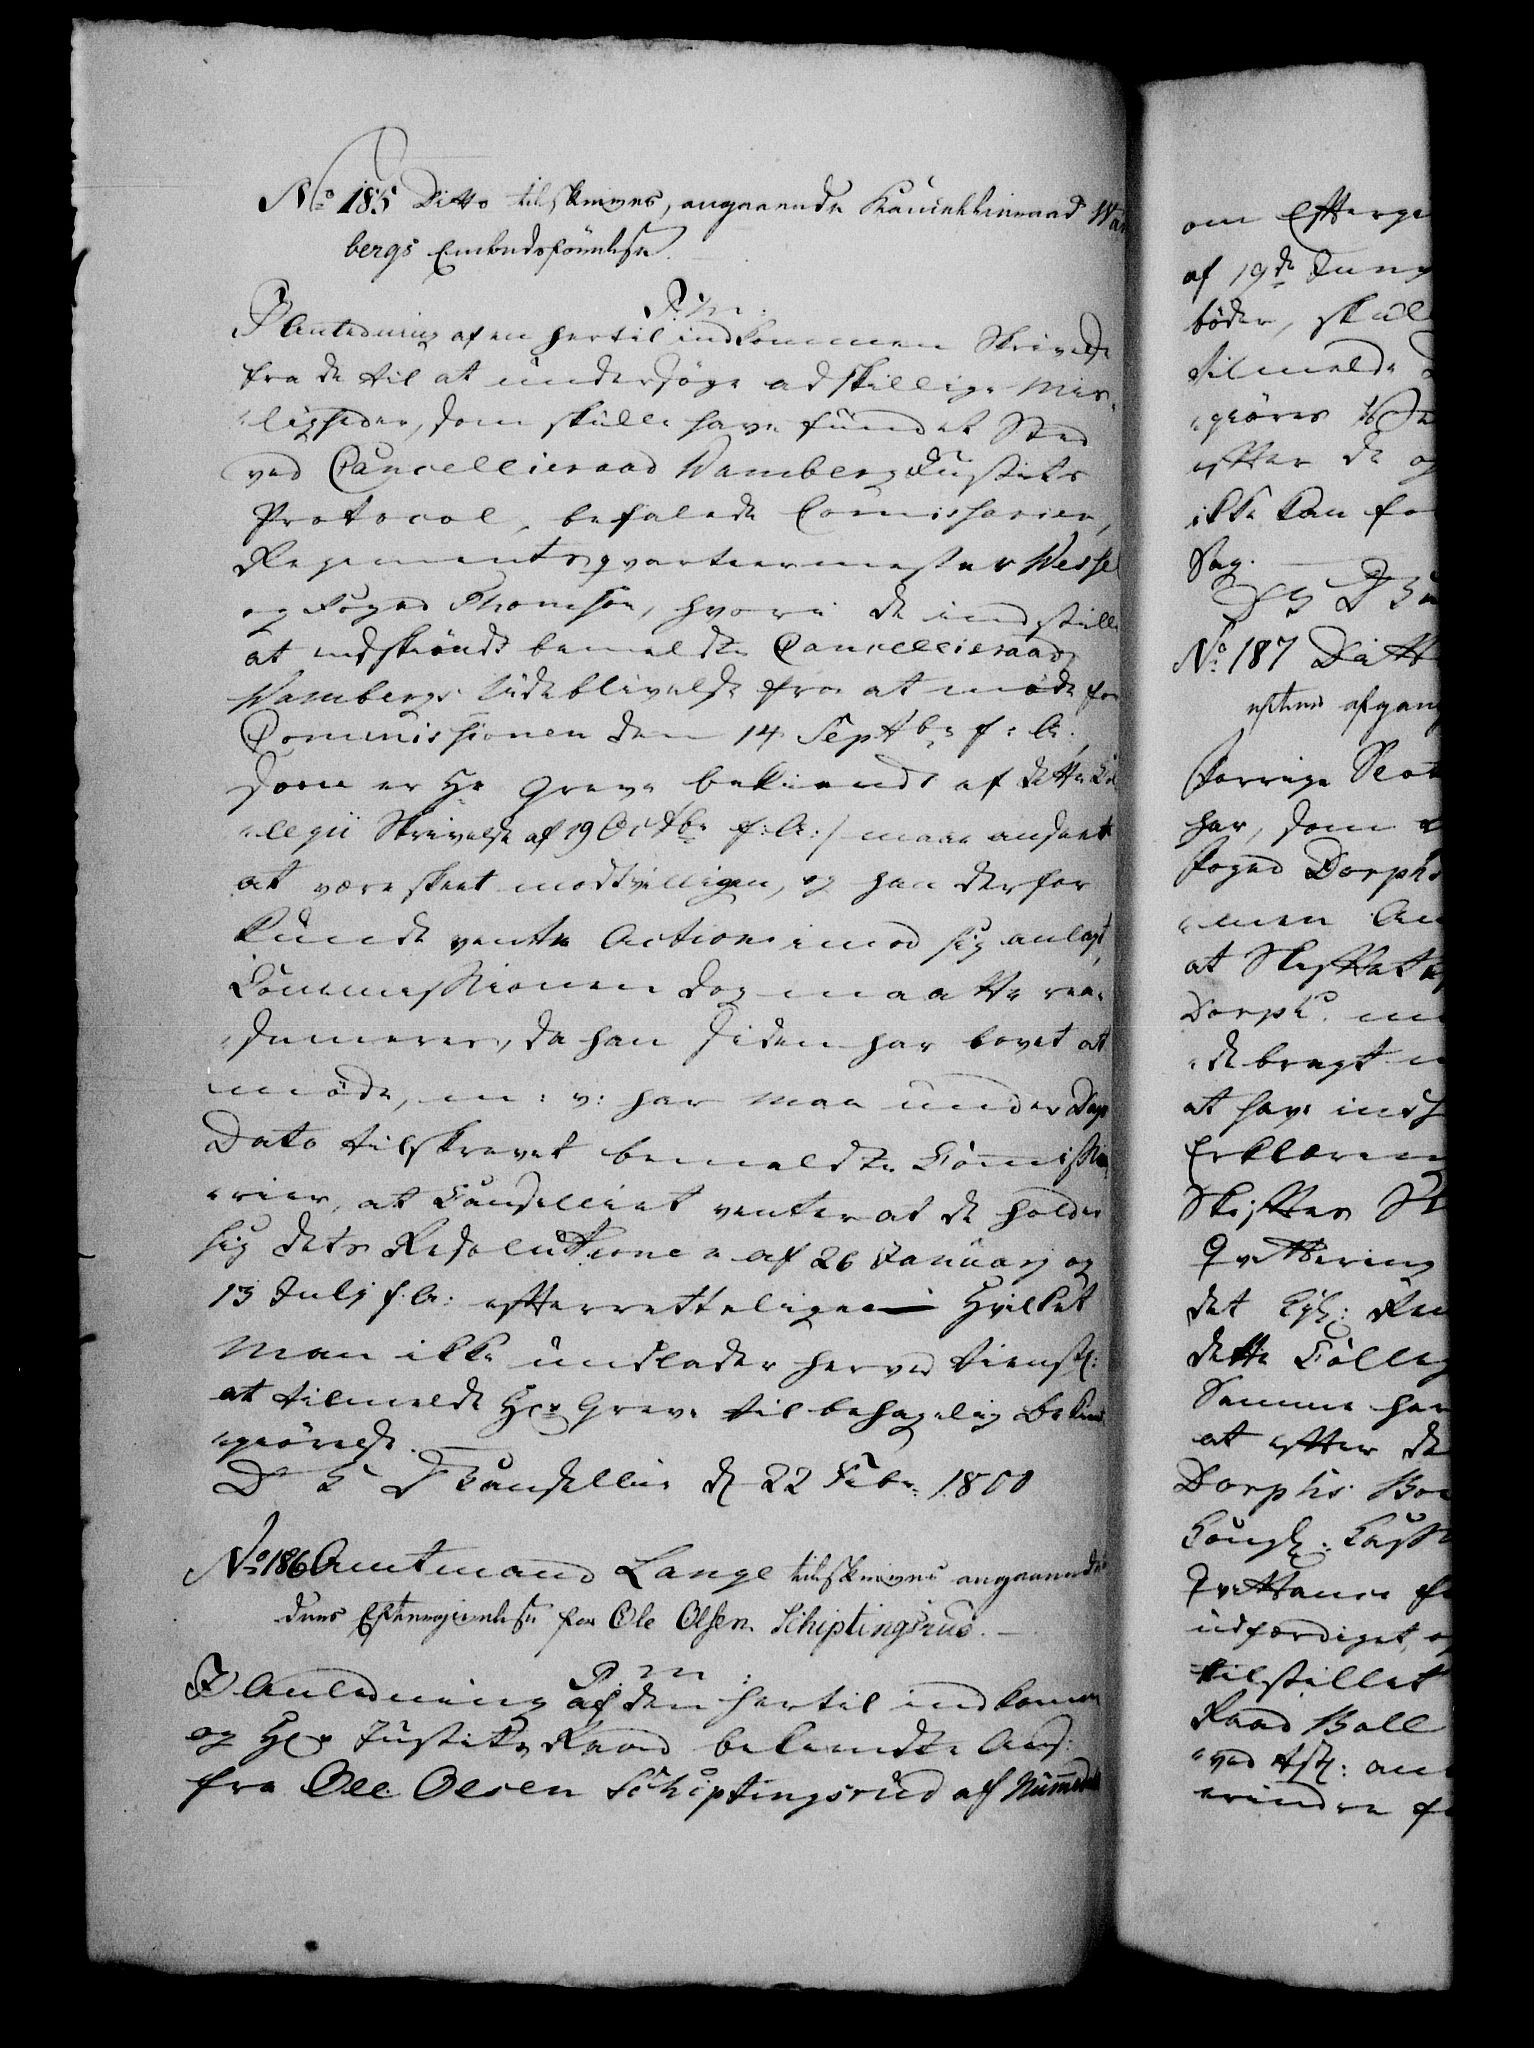 No 185 Ditto tilskrives, angaaende Cancellieraad Wam
bergs Embedsførelse.
P.M.
I Anledning af en hertil indkommen Skrivelse
fra de til at undersøge adskillige Mis-
ligheder, som skulle have fundet Sted
ved Cancellieraad Wambergs Justits
Protocol, befalede Commissarier,
Regimentsqvarteermester Wessel
og Foged Thomson, hvori de indstille
at endskiøndt bemeldte Cancellieraad
Wambergs Udeblivelse fra at møde for
Commissionen den 14 Septbr f: A:
som er Hr Greve bekiendt af dette Col
legii Skrivelse af 19 Octbr f: A:/ maae ansees
at være skeet modtvilligen, og han derfor
kunde vente Action imod sig anlagt,
Commissionen dog maatte rea-
sumeres, da han siden har lovet at
møde, m: v: har man under Dags
Dato tilskrevet bemeldte Commissa
rier, at Cancelliet venter at de holder
sig dets Resolutioner af 26 Januarj og
13 Julj f: A: efterrettelige Hvilket
Man ikke undlader herved tienstl:
at tilmelde Hr Greve til behagelig Bekiendt
giørelse.
D C D Cancellie d 22 Febr: 1800
No 186 Amtmand Lange tilskrives angaaende
Efterg for Ole Olsen Schiptingsrud.
P. M:
I Anledning af den hertil indkomne
og Hr Justits Raad bekiendte Ans:
fra Ole Olsen Schiptingsrud af Numedal
om Efterg
af 19de Jung
bøder, skull
tilmelde
giøres
efter de og
ikke kan fo
Sag.
D C D Can
No 187 Ditto
afgang
forrige
har, som
Foged Dorphs
men An
at Skiftet
Dorph
debragt
at have inds
Erklæring
Skiftes
Qvittering
det Kgl: Ren
dette Colleg
Samme har
at efter de
Dorphs Boe
Cassa
Qvittance
udfærdiget
tilstillet
Raad Ball
ved tstl: an
erindre